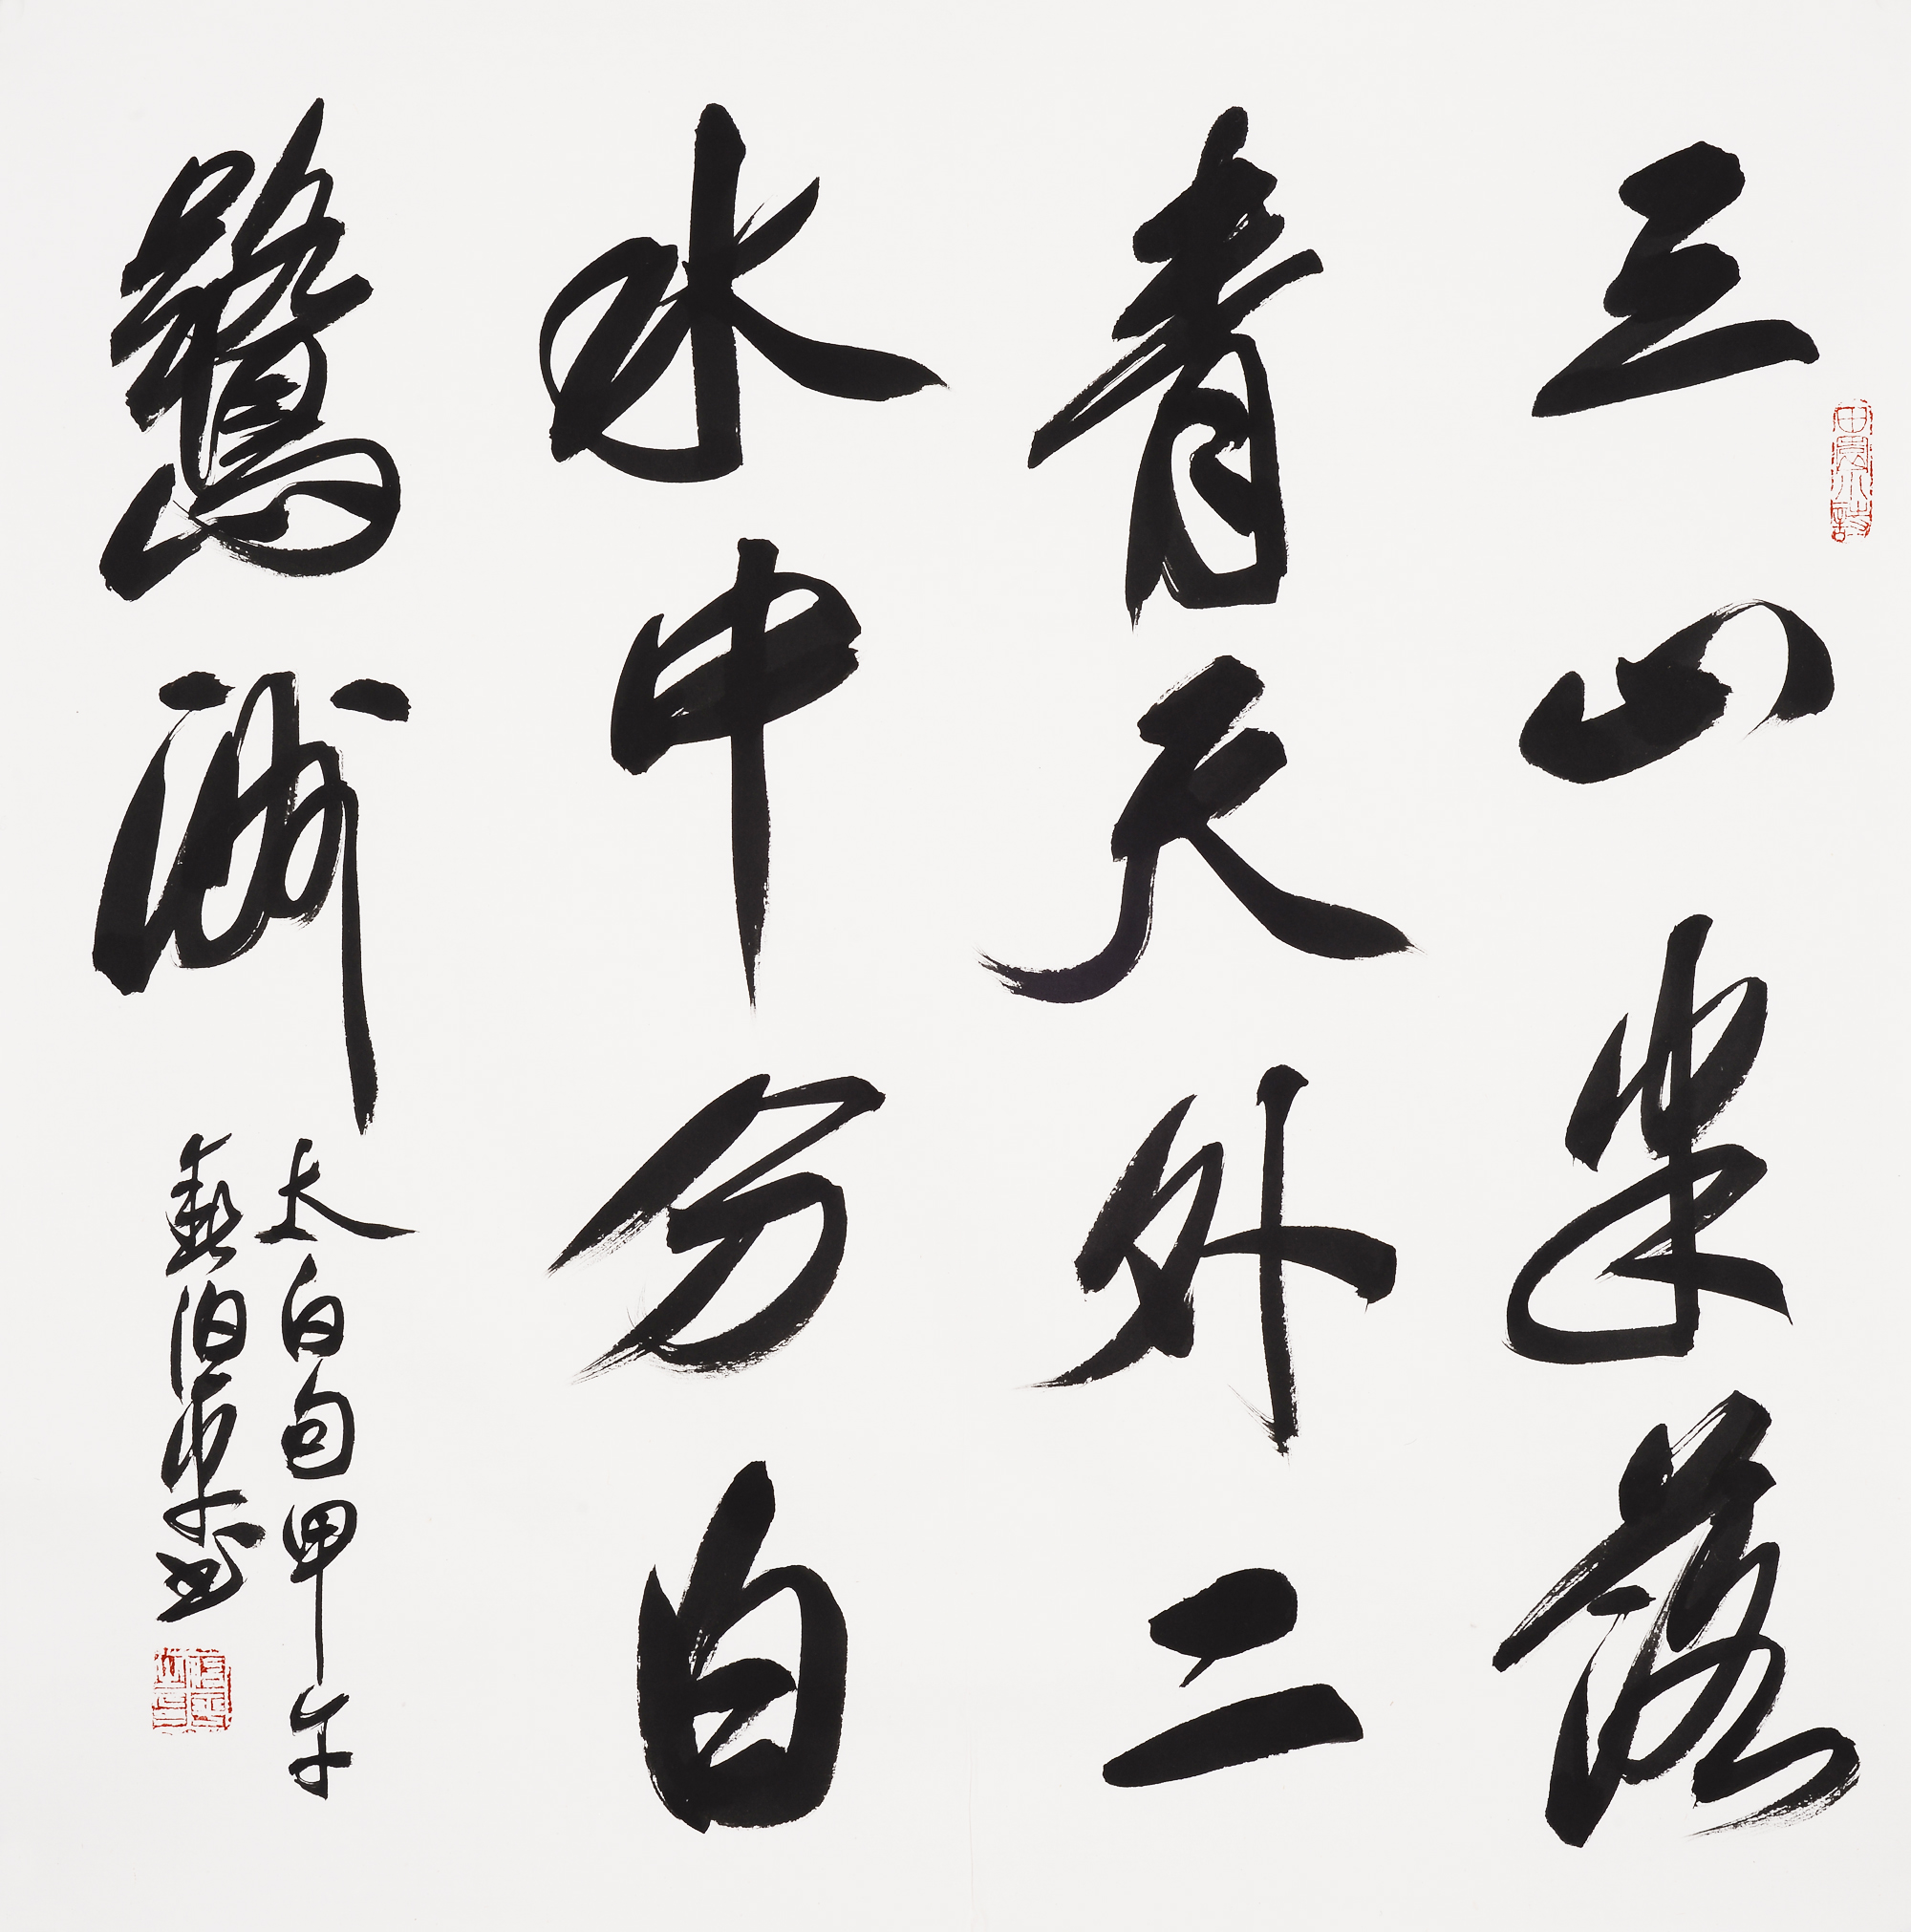 三山半落
青天外二
水中分白
鷺洲
太白句甲午
伯書